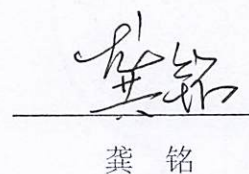 龚铭
龚 铭